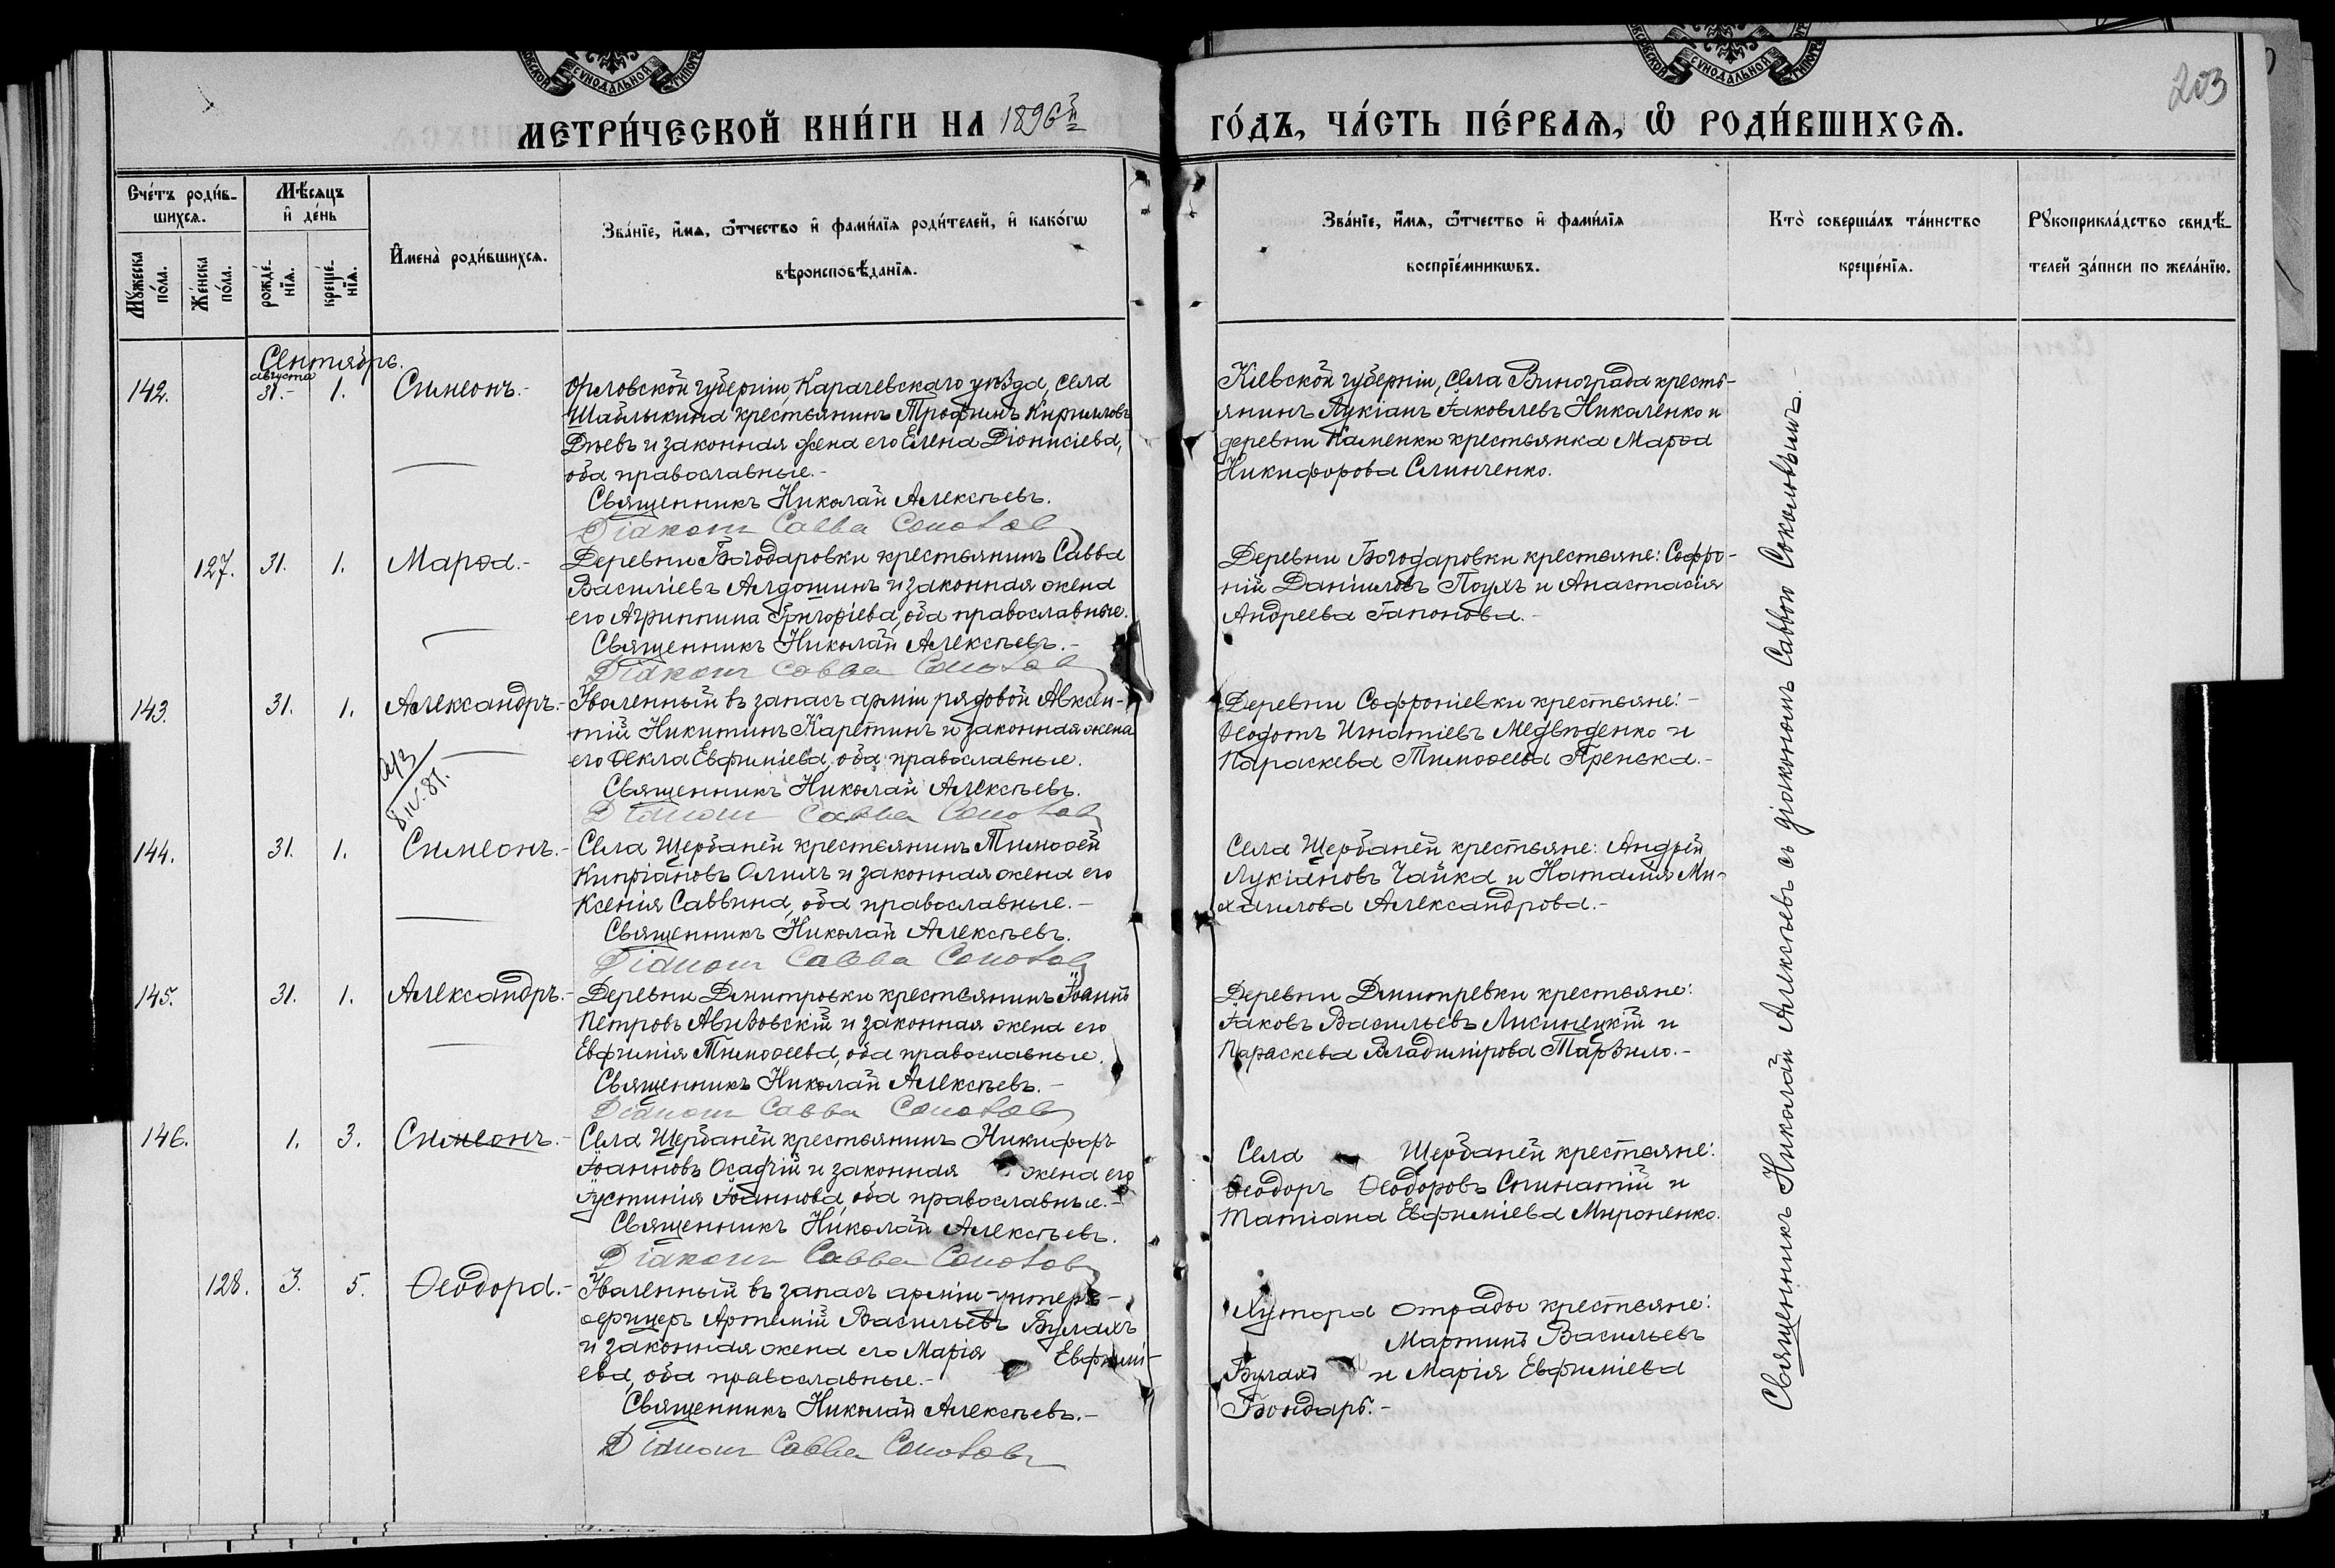 203
МЕТРИ́ЧЕСКОЙ КНИ́ГИ НА 1896й
ГО́ДЪ, ЧА́СТЬ ПЕ́РВАЯ, Ѡ РОДИ́ВШИХСЯ.
Сче́тъ роди́в-
шихся.
Мѣ́сяцъ
и҆ де́нь
Му́жеска
по́ла.
Же́нска
по́ла.
рожде́-
нїя.
креще́-
нїя.
И҆мена̀ роди́вшихся.
Зва́нїе, и҆́мя, ѻ҆́тчество и҆ фами́лїя роди́телей, и҆ како́гѡ
вѣроисповѣ́данїя.
Зва́нїе, и҆́мя, ѻ҆́тчество и҆ фами́лїя
воспрїе́мникѡвъ.
Кто̀ соверша́лъ та́инство
креще́нїя.
Рꙋкоприкла́дство свидѣ́-
телей за́писи по жела́нїю.
Сентябрь.
августа
142. 31.- 1. Симеонъ.-
Орловской губерніи, Карачевскаго уѣзда, села
Шаблыкина крестьянинъ Трофимъ Кирилловъ
и законная жена его Елена Діонисіева,
оба православные.-
Священникъ Николай Алексѣевъ.
Діаконъ Савва Соколов
Кіевской губерніи, села Винограда кресть-
янинъ Лукіанъ Іаковлевъ Николенко и
деревни Каменки крестьянка Марѳа
Никифорова Слинченко.
127. 31. 1. Марѳа.-
Деревни Богодаровки крестьянинъ Савва
Василіевъ Алдошинъ и законная жена
его Агриппина Григоріева, оба православные.
Священникъ Николай Алексѣевъ.-
Діаконъ Савва Соколов
Деревни Богодаровки крестьяне: Софро-
ній Даніиловъ Поухъ и Анастасія
Андреева Гапонова.-
143. 31. 1. Александръ.-
8.IV.81.
Уволенный въ запасъ арміи рядовой Авксен-
тій Никитинъ Каретинъ и законная жена
его Ѳекла Евфиміева, оба православные.
Священникъ Николай Алексѣевъ.
Діаконъ Савва Соколов
Деревни Софроніевки крестьяне:-
Ѳеодотъ Игнатіевъ Медвѣденко и
Параскева Тимоѳеева Яренька.-
144. 31. 1. Симеонъ.-
Села Щербаней крестьянинъ Тимоѳей
Кипріановъ Олихъ и законная жена его
Ксенія Саввина, оба православные.-
Священникъ Николай Алексѣевъ.
Діаконъ Савва Соколов
Села Щербаней крестьяне: Андрей
Лукіановъ Чайка и Наталія Ми-
хаилова Александрова.-
145. 31. 1. Александръ.-
Деревни Дмитровки крестьянинъ Іоаннъ
Петровъ Авизовскій и законная жена его
Евфимія Тимоѳеева, оба православные.
Священникъ Николай Алексѣевъ.-
Діаконъ Савва Соколов
Деревни Дмитревки крестьяне:
Іаковъ Васильевъ Лисинецкій и
Параскева Владимірова Тарзило.-
146. 1. 3. Симеонъ.-
Села Щербаней крестьянинъ Никифоръ
Іоанновъ Осадчій и законная жена его
Іустинія Іоаннова, оба православные.-
Священникъ Николай Алексѣевъ.
Діаконъ Савва Соколов
Села Щербаней крестьяне:
Ѳеодоръ Ѳеодоровъ Сигнатій и
Татіана Евфиміева Мироненко.
128. 3. 5. Ѳеодора.-
Уволенный въ запасъ арміи унтеръ-
офицеръ Артемій Васильевъ Булахъ
и законная жена его Марія Евфимі-
ева, оба православные.-
Священникъ Николай Алексѣевъ.-
Діаконъ Савва Соколовъ
Хутора Отрады крестьяне:
Мартинъ Васильевъ
Булахъ и Марія Евфиміева
Бондарь.-
Священникъ Николай Алексѣевъ съ діакономъ Саввою Соколовымъ.